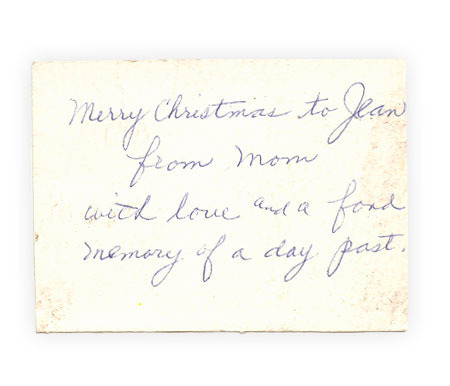 Merry Christmas to Jean
from Mom
with love and a fond
memory of a day past.